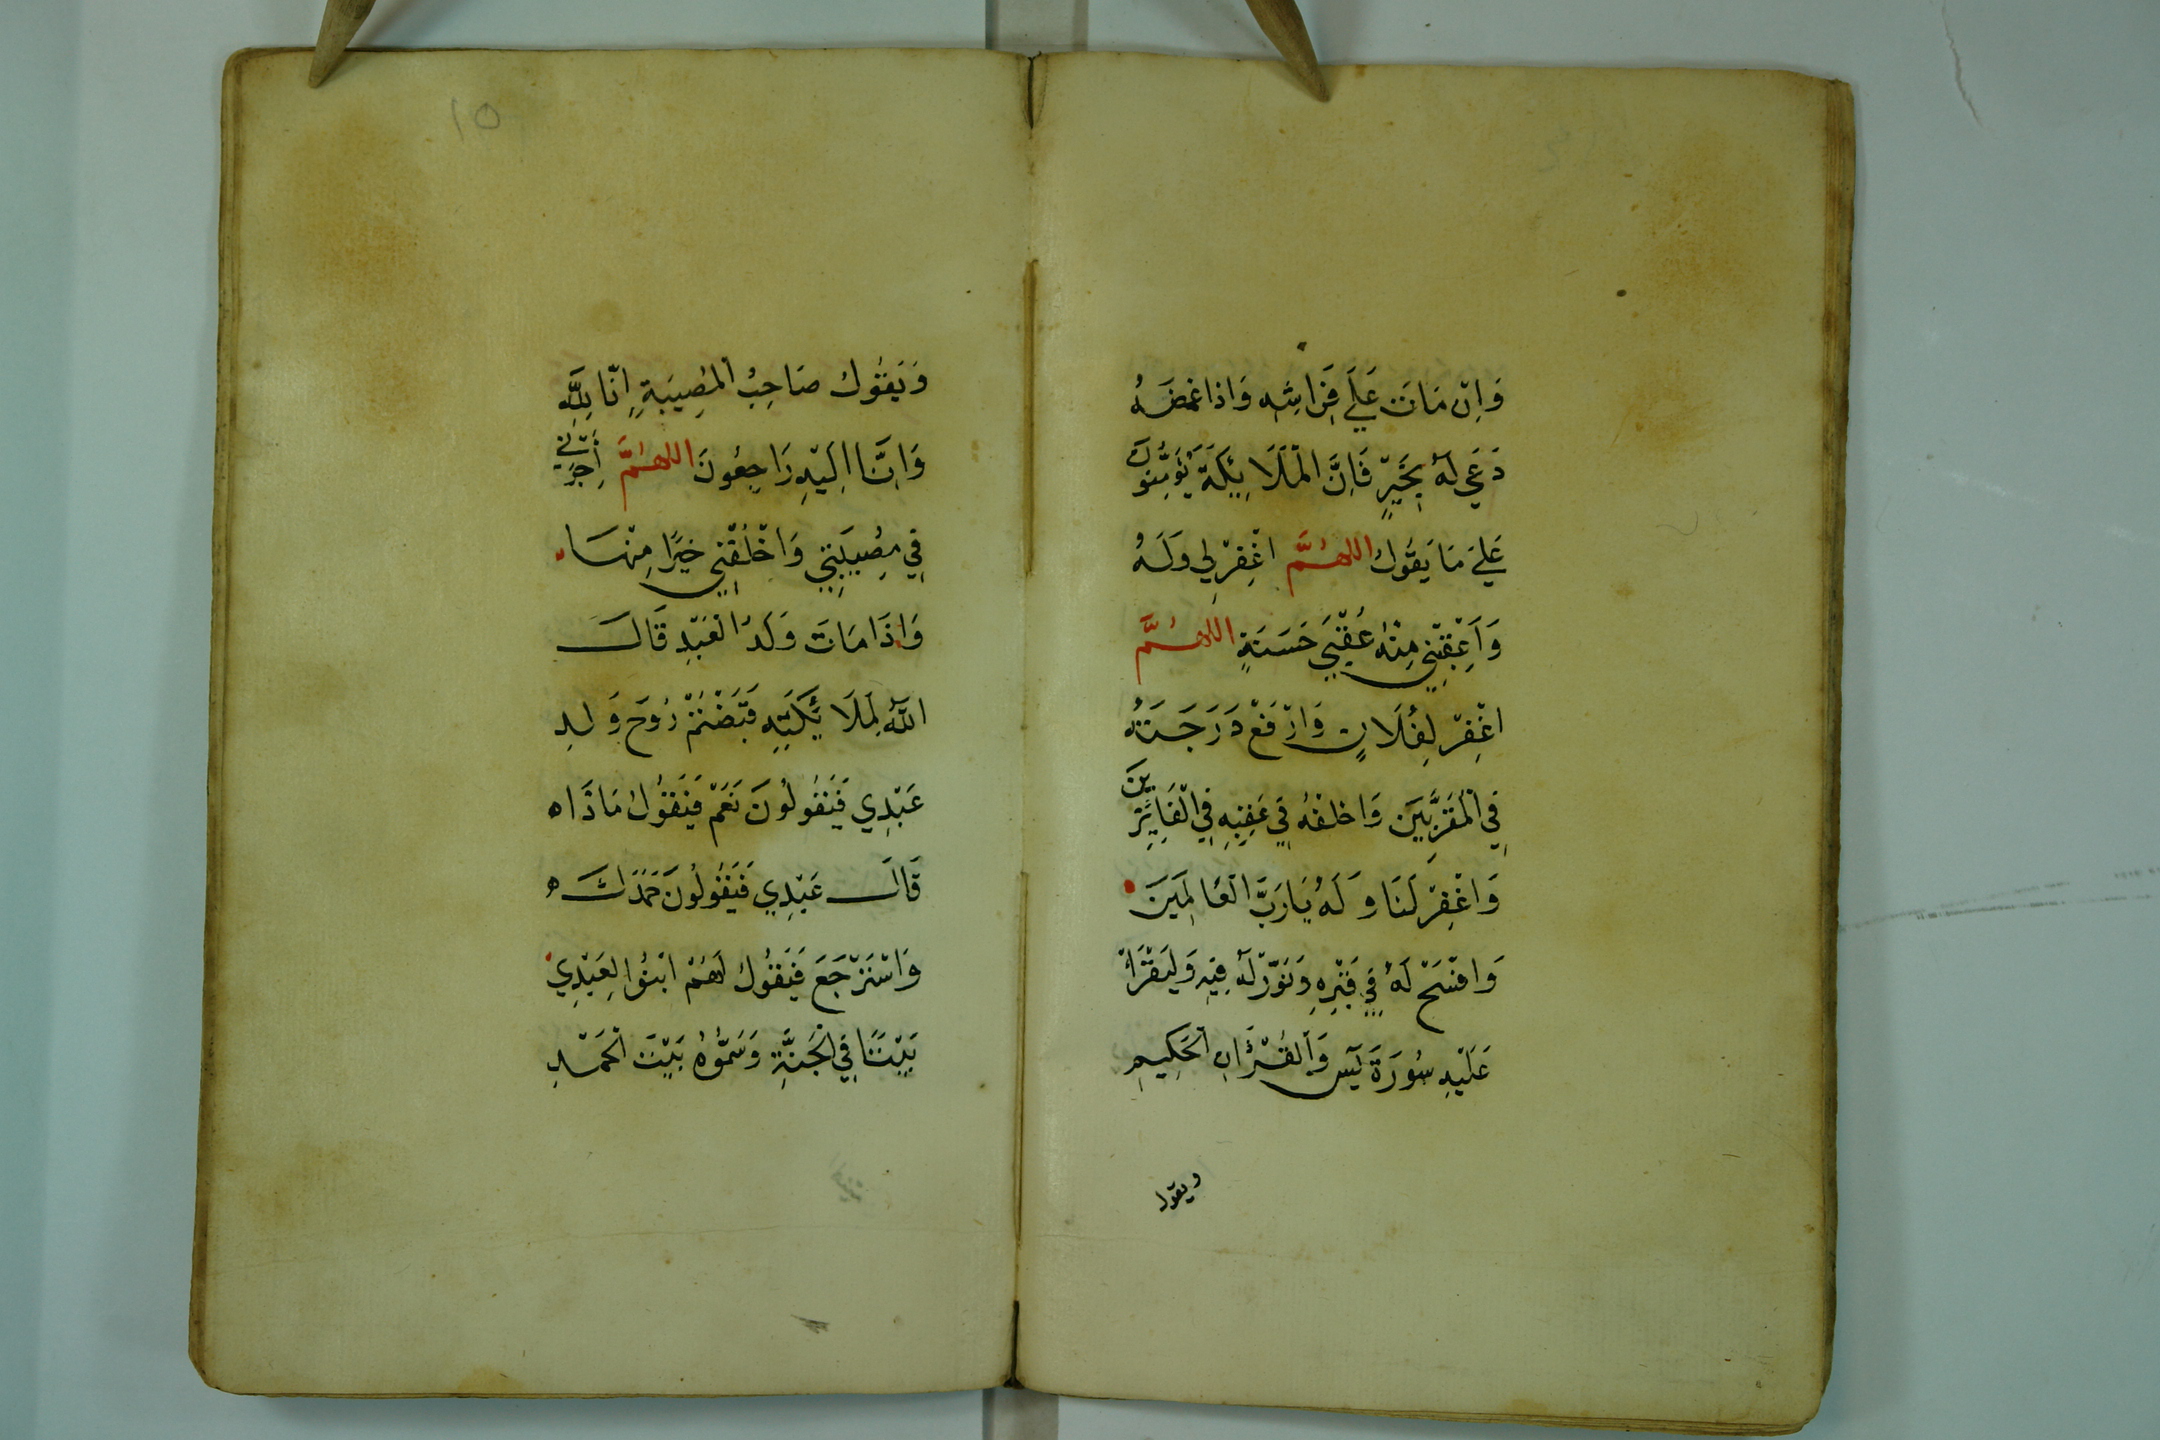 وَاِنْ مَاتَ عَلَے فِرَاشِهِ وَاِذَا غَمَّضَهُ
دَعَي لَهُ بِخَيْرٍ فَاِنَّ الْمَلَائِكَةَ يُؤَمِّنُونَ
عَلَے مَا يَقُولُ اللهُمَّ اغْفِرْ لِي وَلَهُ
وَاَعْقِبْنِي مِنْهُ عُقْبَي حَسَنَةٍ اللهُمَّ
اغْفِرْ لِفُلَانٍ وَارْفَعْ دَرَجَتَهُ
فِي الْمُقَرَّبِينَ وَاخْلُفْهُ فِي عَقِبِهِ فِي الْغَابِرِينَ
وَاغْفِرْ لَنَا وَلَهُ يَا رَبَّ الْعَالَمِينَ
وَافْسَحْ لَهُ فِي قَبْرِهِ وَنَوِّرْ لَهُ فِيهِ وَلْيَقْرَأْ
عَلَيْهِ سُورَةَ يَٓس وَالْقُرْاٰنِ الْحَكِيمِ
ويقول
١٥
وَيَقُولُ صَاحِبُ الْمُصِيبَةِ اِنَّا لِلّٰهِ
وَاِنَّا اِلَيْهِ رَاجِعُونَ اللهُمَّ أَجِرْنِي
فِي مُصِيبَتِي وَاخْلُفْنِي خَيْرًا مِنْهَا
وَاِذَا مَاتَ وَلَدُ الْعَبْدِ قَالَ
اللّٰهُ لِمَلَائِكَتِهِ قَبَضْتُمْ رُوحَ وَلَدِ
عَبْدِي فَيَقُولُونَ نَعَمْ فَيَقُولُ مَاذَا ه
قَالَ عَبْدِي فَيَقُولُونَ حَمِدَكَ ه
وَاسْتَرْجَعَ فَيَقُولُ لَهُمْ ابْنُوا لِعَبْدِي
بَيْتًا فِي الْجَنَّةِ وَسَمُّوهُ بَيْتَ الْحَمْدِ